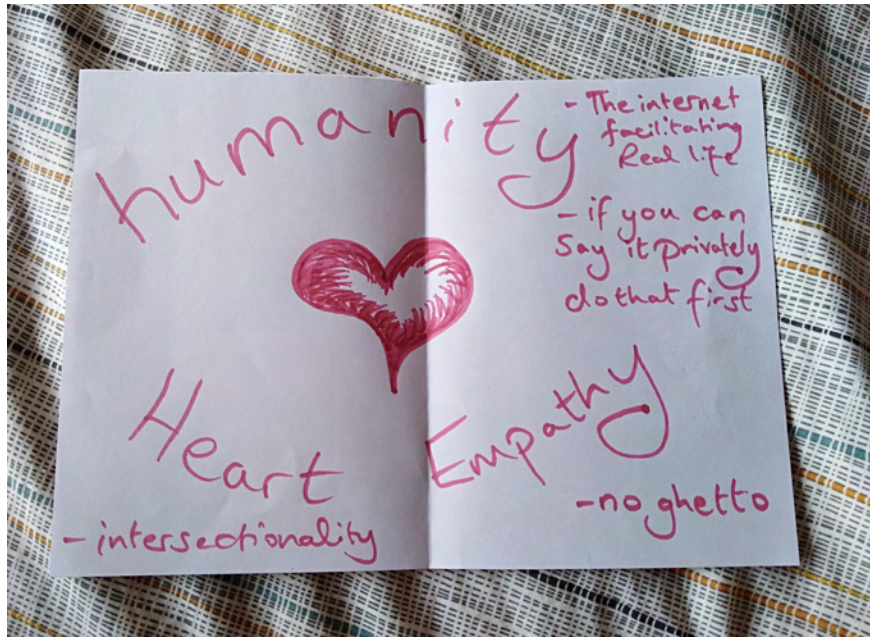 humanity
- The internet
facilitating
Real life
- if you can
say it privately
do that first
Heart
- intersectionality
Empathy
- no ghetto